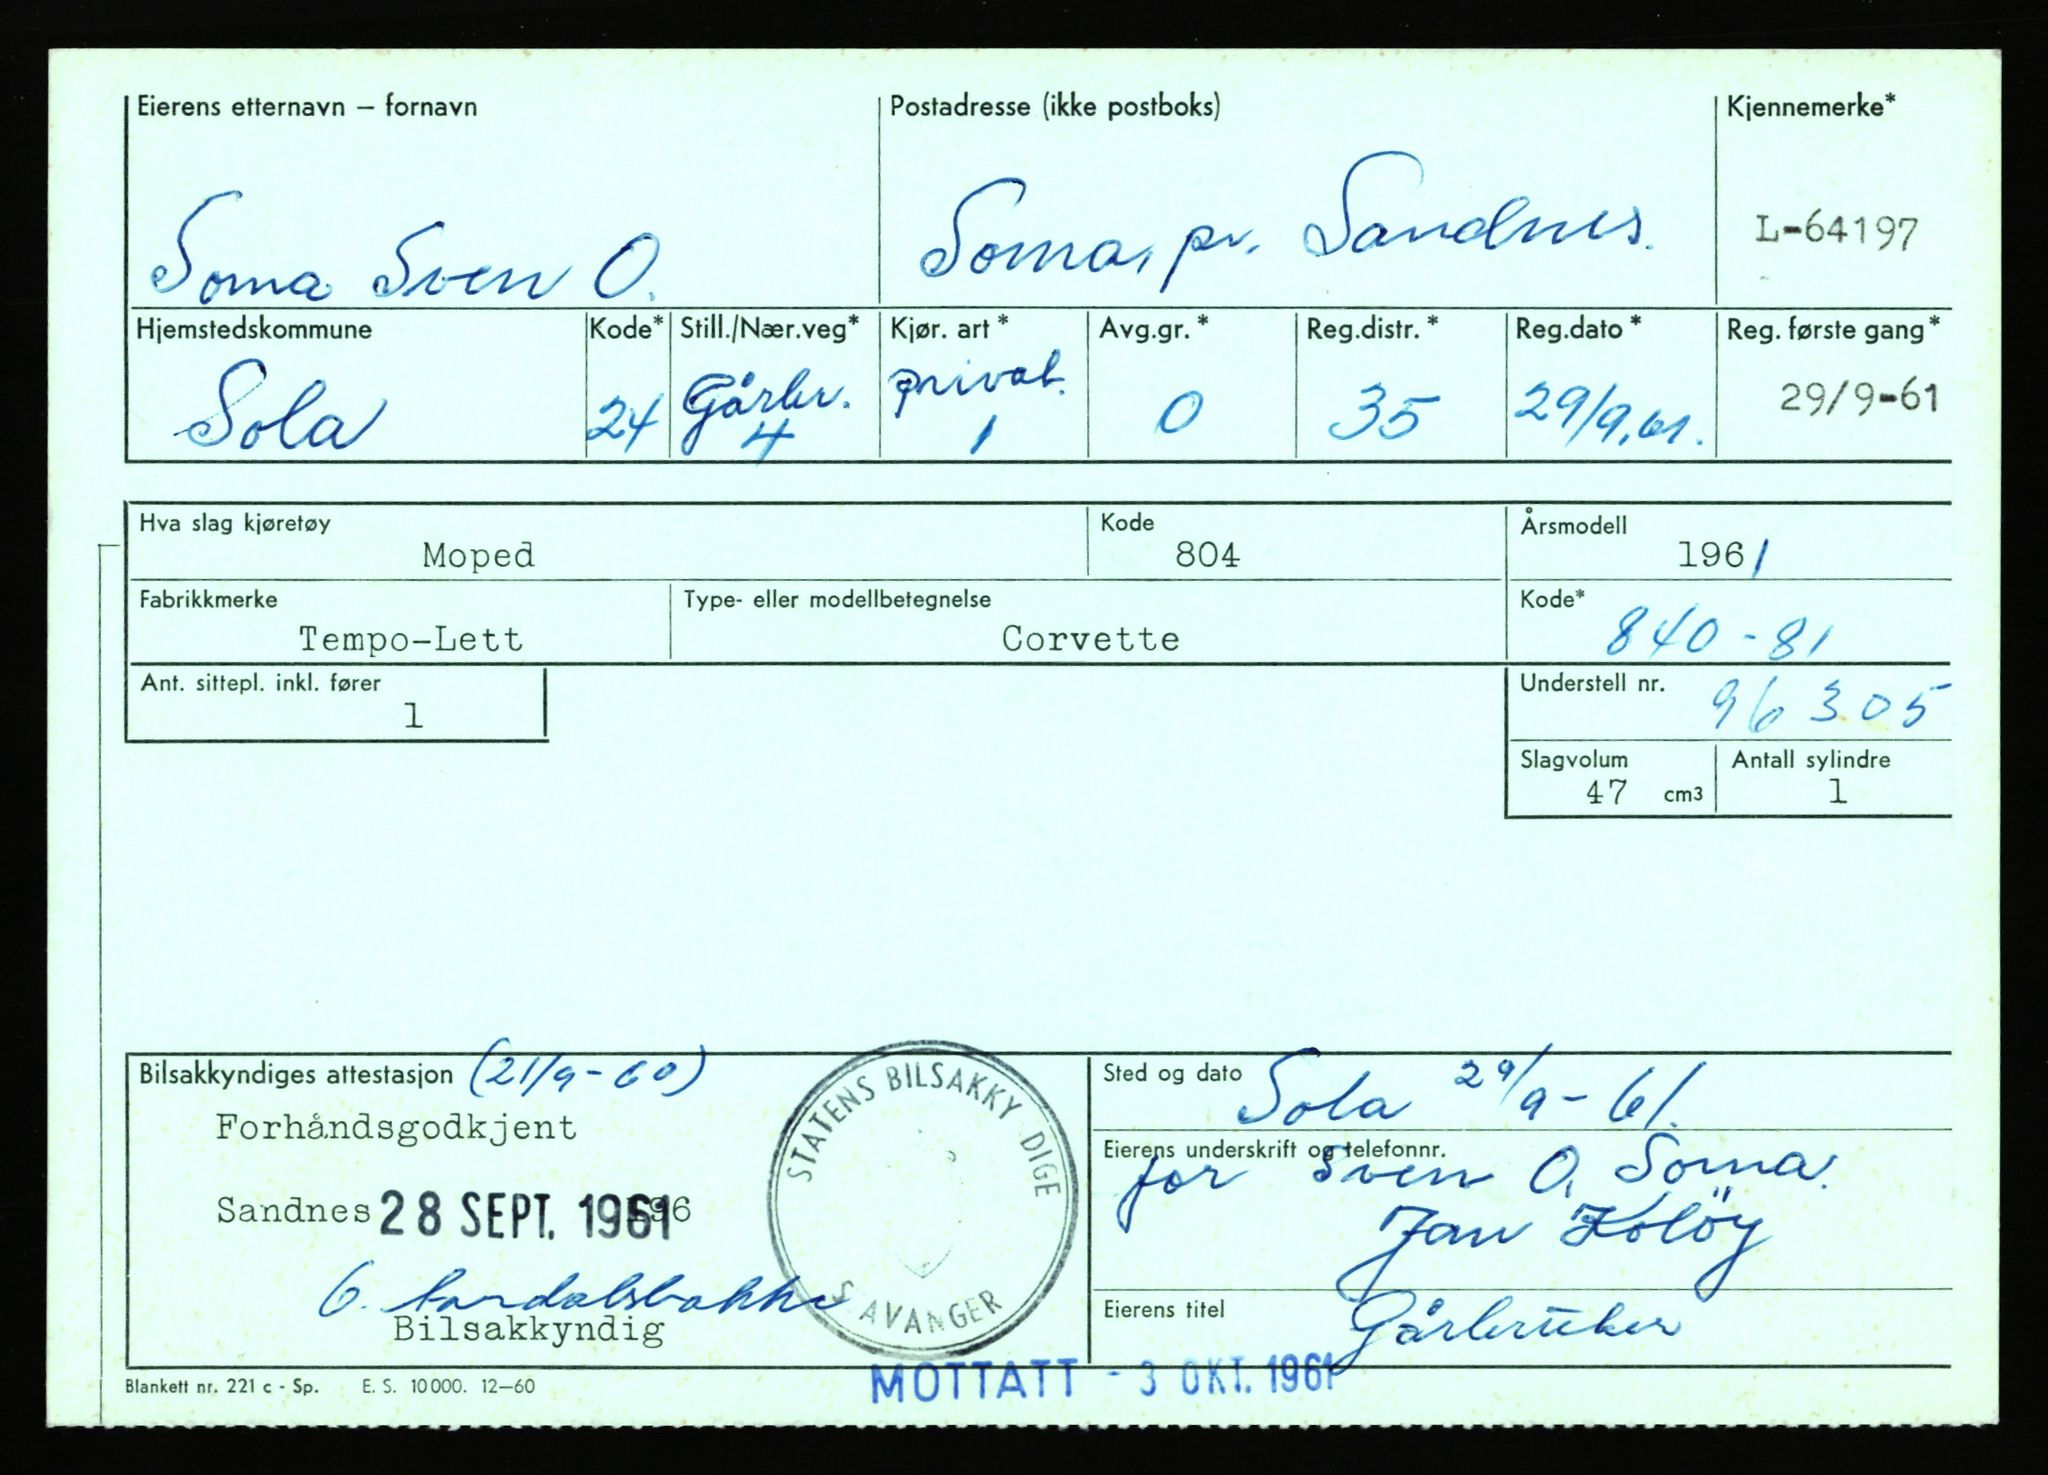 Eierens etternavn – fornavn Postadresse (ikke postboks) Kjennemerke*
Soma Sven O. Soma, pr. Sandnes. L-64197
Hjemstedskommune Kode* Still./Nær.veg* Kjør. art* Avg.gr.* Reg.distr.* Reg.dato* Reg. første gang*
Sola 24 Gårbr. 4 privat. 1 0 35 29/9.61. 29/9-61
Hva slag kjøretøy Kode Årsmodell
Moped 804 1961
Fabrikkmerke Type- eller modellbetegnelse Kode*
Tempo-Lett Corvette 840-81
Ant. sittepl. inkl. fører Understell nr.
1 96305
Slagvolum Antall sylindre
47 cm3 1
Bilsakkyndiges attestasjon (21/9-60)
Forhåndsgodkjent
Sandnes 28 SEPT. 1961 196
Bilsakkyndig
STATENS BILSAKKYNDIGE
STAVANGER
Sted og dato Sola 29/9-61.
Eierens underskrift og telefonnr.
for Sven O. Soma.
Jan Kolöy
Eierens titel Gårbruker
Blankett nr. 221 c - Sp. E. S. 10000. 12–60
MOTTATT - 3 OKT. 1961